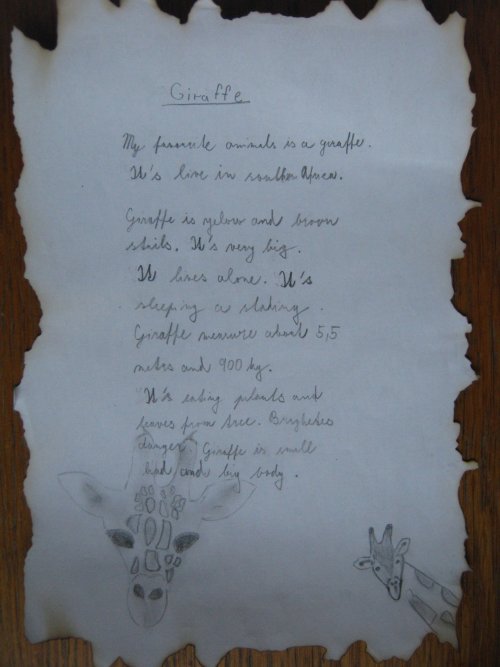 Giraffe
My favourite animals is a giraffe.
It's live in souther Africa.
Giraffe is yelow and brown
stails. It's very big.
It lives alone. It's
sleeping a stading.
Giraffe measure about 5,5
metes and 900 kg.
It's eating plants and
leaves from tree.
danger. Giraffe is small
head and big body.